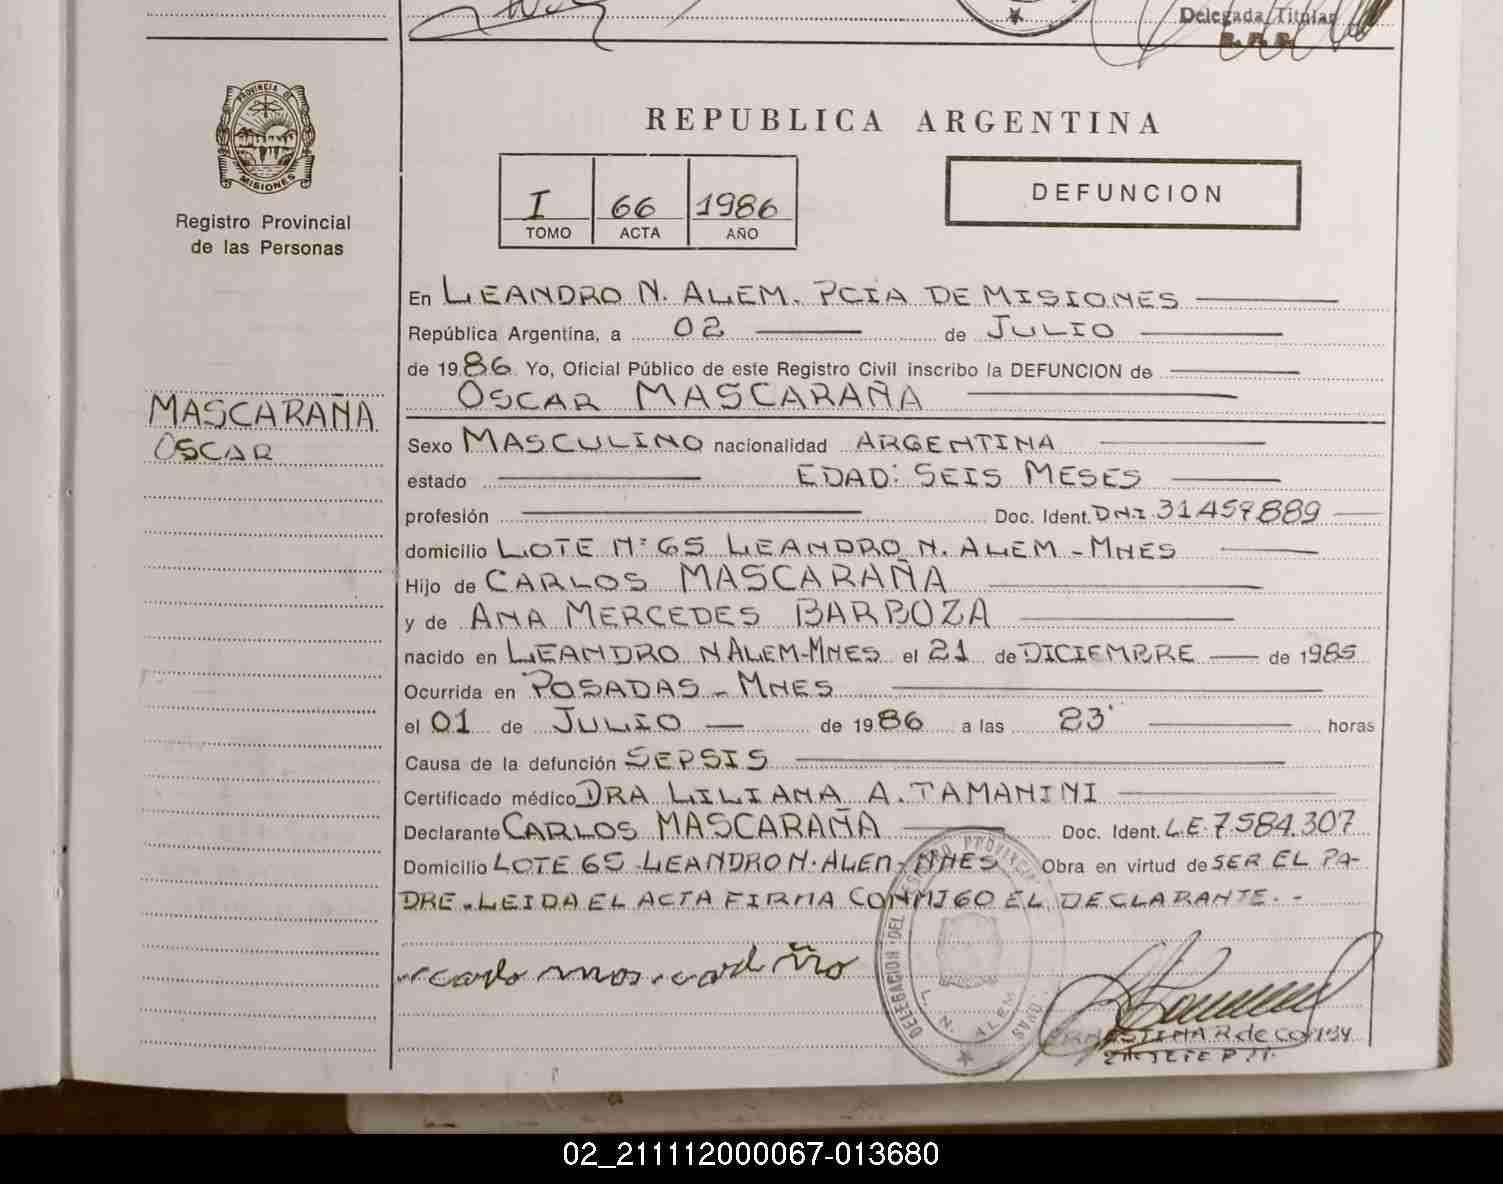 Delegada Titular
PROVINCIA DE
MISIONES
Registro Provincial
de las Personas
MASCARAÑA
OSCAR
REPUBLICA ARGENTINA
I 66 1986
TOMO ACTA AÑO
DEFUNCION
En LEANDRO N. ALEM. PCIA DE MISIONES
República Argentina, a 02 de JULIO
de 1986 Yo, Oficial Público de este Registro Civil inscribo la DEFUNCION de
OSCAR MASCARAÑA
Sexo MASCULINO nacionalidad ARGENTINA
estado EDAD: SEIS MESES
profesión Doc. Ident. DNI 31.457.889
domicilio LOTE Nº 65 LEANDRO N. ALEM - MNES
Hijo de CARLOS MASCARAÑA
y de ANA MERCEDES BARBOZA
nacido en LEANDRO N ALEM-MNES el 21 de DICIEMBRE de 1985
Ocurrida en POSADAS - MNES
el 01 de JULIO de 1986 a las 23 horas
Causa de la defunción SEPSIS
Certificado médico DRA LILIANA A. TAMANINI
Declarante CARLOS MASCARAÑA Doc. Ident. L.E. 7.584.307
Domicilio LOTE 65 LEANDRO N. ALEM - MNES Obra en virtud de SER EL PA-
DRE. LEIDA EL ACTA FIRMA CONMIGO EL DECLARANTE. -
DELEGACION DEL REGISTRO PROVINCIAL
L. N. ALEM
02_211112000067-013680